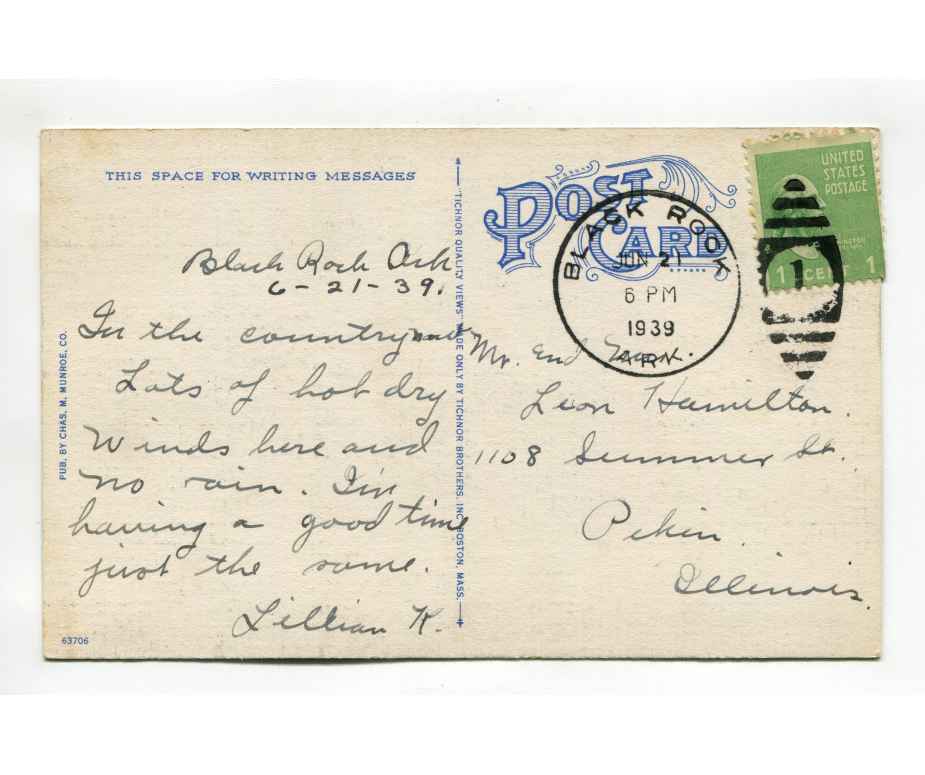 THIS SPACE FOR WRITING MESSAGES
Black Rock Ark
6-21-39.
In the country now
Lots of hot dry
winds here and
no rain. I'm
having a good time
just the same.
Lillian K.
63706
PUB. BY CHAS. M. MUNROE, CO.
TICHNOR QUALITY VIEWS MADE ONLY BY TICHNOR BROTHERS, INC., BOSTON, MASS.
POST
CARD
BLACK ROCK
JUN 21
6 PM
1939
ARK.
UNITED
STATES
POSTAGE
1 CENT 1
1
Mr. End
Leon Hamilton.
1108 Summer St.
Pekin
Illinois.